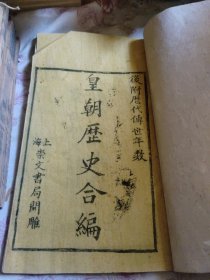 後附歷代傳世年數
皇朝歷史合編
上海崇文書局開雕